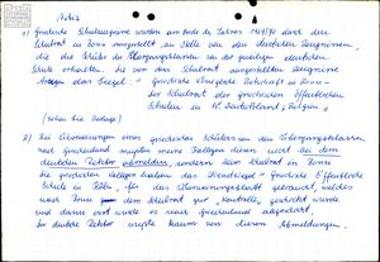 Notiz
1) Griechische Schulzeugnisse wurden am Ende des Jahres 1969/70 durch den
Schulrat in Bonn ausgestellt an Stelle von den deutschen Zeugnissen,
die die Schüler der Übergangsklassen von der jeweiligen deutschen
Schule erhielten. Die von dem Schulrat ausgestellten Zeugnisse
tragen das Siegel: " Griechische Königliche Botschaft in Bonn-
Der Schulrat der griechischen Öffentlichen
Schulen in W. Deutschland, Belgien "
(sehen Sie Beilage)
2) Bei Überweisungen eines griechischen Schülers aus den Übergangsklassen
nach Griechenland mußten meine Kollegen diesen nicht bei dem
deutschen Rektor abmelden, sondern beim Schulrat in Bonn
Die griechischen Kollegen haben das Dienstsiegel " Griechische Öffentliche
Schule in Köln, für das Überweisungsblatt gebraucht, welches
nach Bonn dem Schulrat zur "Kontrolle" geschickt wurde
und dann erst wurde es nach Griechenland abgeschickt,
Der deutsche Rektor wußte kaum von diesen Abmeldungen.